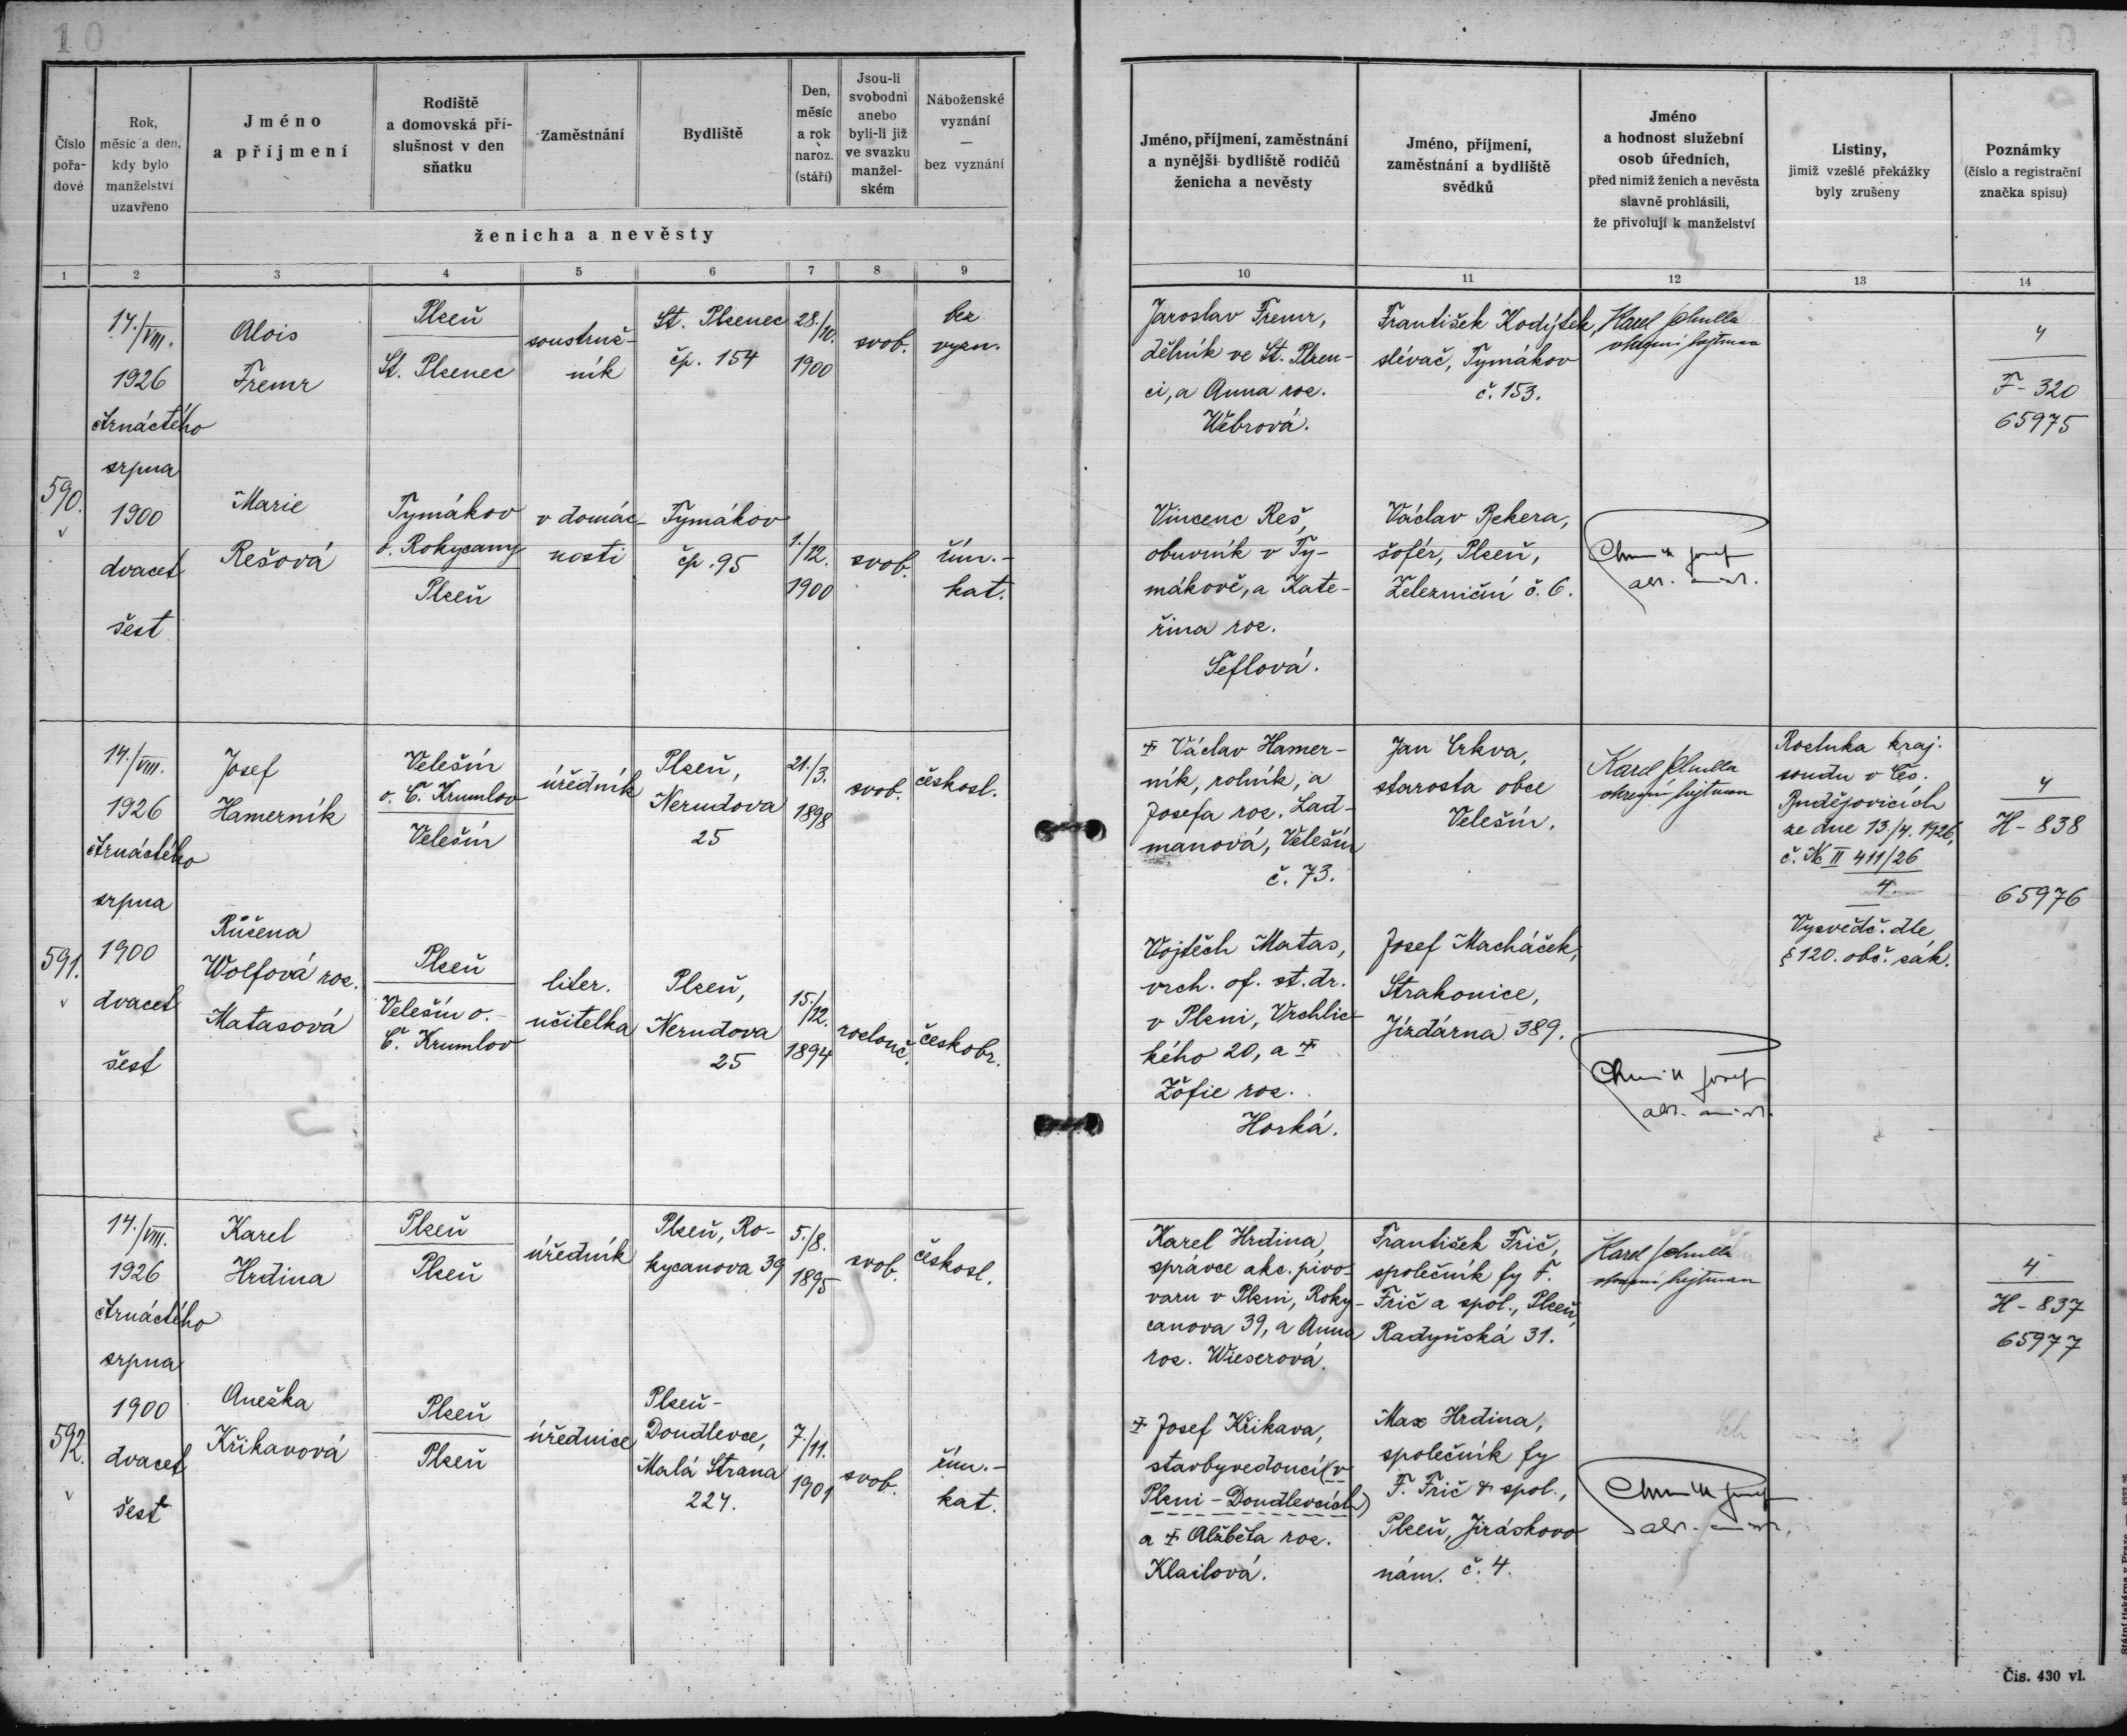 10
10
Číslo
pořa-
dové
Rok,
měsíc a den,
kdy bylo
manželství
uzavřeno
Jméno
a příjmení
Rodiště
a domovská pří-
slušnost v den
sňatku
Zaměstnání
Bydliště
Den,
měsíc
a rok
naroz.
(stáří)
Jsou-li
svobodni
anebo
byli-li již
ve svazku
manžel-
ském
Náboženské
vyznání
—
bez vyznání
ženicha a nevěsty
Jméno, příjmení, zaměstnání
a nynější bydliště rodičů
ženicha a nevěsty
Jméno, příjmení,
zaměstnání a bydliště
svědků
Jméno
a hodnost služební
osob úředních,
před nimiž ženich a nevěsta
slavně prohlásili,
že přivolují k manželství
Listiny,
jimiž vzešlé překážky
byly zrušeny
Poznámky
(číslo a registrační
značka spisu)
1 2 3 4 5 6 7 8 9 10 11 12 13 14
590.
14./VIII.
1926
čtrnáctého
srpna
1900
dvacet
šest
Alois
Fremr
Plzeň
St. Plzenec
soustruž-
ník
St. Plzenec
čp. 154
28./10.
1900
svob.
bez
vyzn.
Jaroslav Fremr,
dělník ve St. Plzen-
ci, a Anna roz.
Wébrová.
František Kodýtek,
slévač, Tymákov
č. 153.
Karel
okresní hejtman
4
F - 320
65975
Marie
Rešová
Tymákov
o. Rokycany
Plzeň
v domác-
nosti
Tymákov
čp. 95
1./12.
1900
svob.
řím.-
kat.
Vincenc Reš,
obuvník v Ty-
mákově, a Kate-
řina roz.
Šeflová.
Václav Bekera,
šofér, Plzeň,
Železniční č. 6.
Josef
591.
14./VIII.
1926
čtrnáctého
srpna
1900
dvacet
šest
Josef
Hamerník
Velešín
o. Č. Krumlov
Velešín
úředník
Plzeň,
Nerudova
25
21./3.
1898
svob.
českosl.
☩ Václav Hamer-
ník, rolník, a
Josefa roz. Lad-
manová, Velešín
č. 73.
Jan Crkva,
starosta obce
Velešín.
Karel
okresní hejtman
Rozluka kraj.
soudu v Čes.
Budějovicích
ze dne 13./4. 1926,
č. Nc II 411/26
4
Vysvědč. dle
§ 120. obč. zák.
4
H - 838
65976
Růžena
Wolfová roz.
Matasová
Plzeň
Velešín o.
Č. Krumlov
liter.
učitelka
Plzeň,
Nerudova
25
15./12.
1894
rozlouč.
českobr.
Vojtěch Matas,
vrch. of. st. dr.
v Plzni, Vrchlic-
kého 20, a ☩
Žofie roz.
Horká.
Josef Macháček,
Strakonice,
Jízdárna 389.
Josef
592.
14./VIII.
1926
čtrnáctého
srpna
1900
dvacet
šest
Karel
Hrdina
Plzeň
Plzeň
úředník
Plzeň, Ro-
kycanova 39
5./8.
1895
svob.
českosl.
Karel Hrdina,
správce akc. pivo-
varu v Plzni, Roky-
canova 39, a Anna
roz. Wieserová.
František Frič,
společník fy F.
Frič a spol., Plzeň,
Radyňská 31.
Karel
okresní hejtman
4
H - 837
65977
Anežka
Křikavová
Plzeň
Plzeň
úřednice
Plzeň-
Doudlevce,
Malá Strana
224.
7./11.
1901
svob.
řím.-
kat.
☩ Josef Křikava,
stavbyvedoucí (v
Plzni - Doudlevcích)
a ☩ Alžběta roz.
Klailová.
Max Hrdina,
společník fy
F. Frič & spol.,
Plzeň, Jiráskovo
nám. č. 4.
Čís. 430 vl.